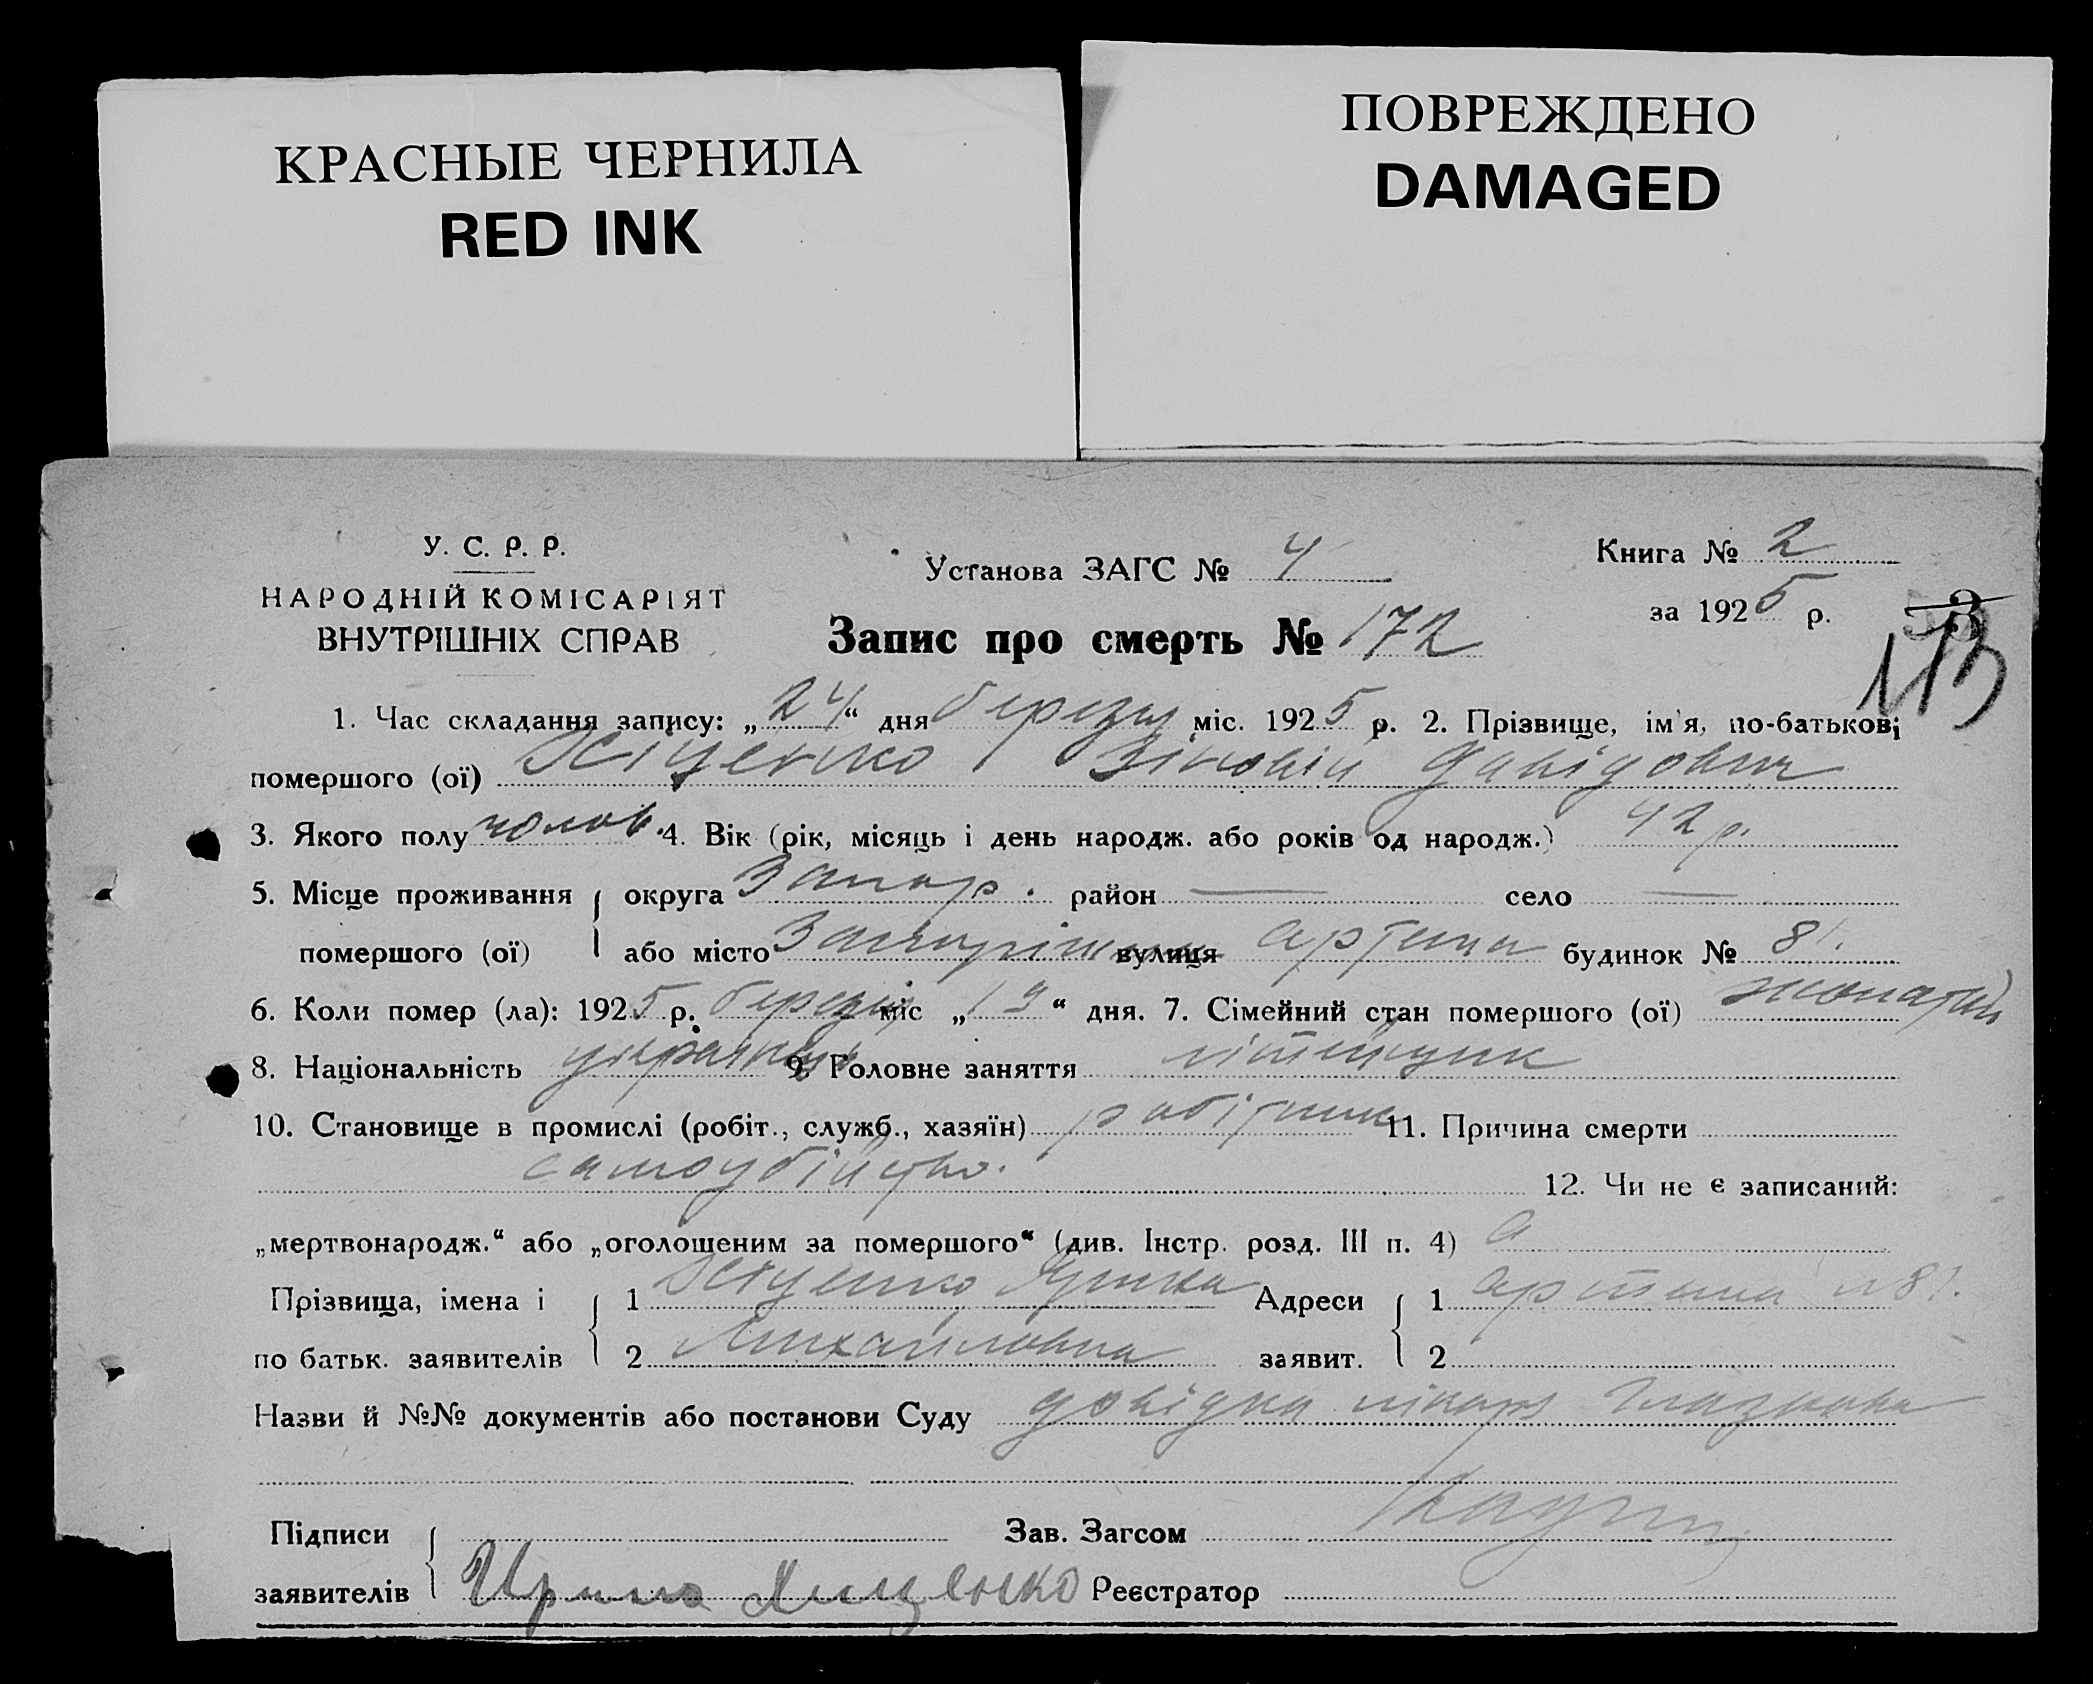 КРАСНЫЕ ЧЕРНИЛА
RED INK
ПОВРЕЖДЕНО
DAMAGED
У. С. Р. Р.
НАРОДНІЙ КОМІСАРІЯТ
ВНУТРІШНІХ СПРАВ
Установа ЗАГС № 4
Книга № 2
за 1925 р.
Запис про смерть № 172
113
1. Час складання запису: „24“ дня березня міс. 1925 р. 2. Прізвище, ім'я, по-батькові
помершого (ої) Зіновій Давідович
3. Якого полу чолов. 4. Вік (рік, місяць і день народж. або років од народж.) 42 р.
5. Місце проживання округа Запор. район — село —
помершого (ої) або місто Запоріжжя вулиця Артема будинок № 81.
6. Коли помер (ла): 1925 р. березня міс „19“ дня. 7. Сімейний стан помершого (ої) жонатий
8. Національність українець 9. Головне заняття літейщик
10. Становище в промислі (робіт., служб., хазяїн) робітник 11. Причина смерти
самоубійство. 12. Чи не є записаний:
„мертвонародж.“ або „оголошеним за помершого“ (див. Інстр. розд. III п. 4)
Прізвища, імена і 1 Адреси 1 Артема № 81.
по батьк. заявителів 2 Михайловна заявит. 2
Назви й №№ документів або постанови Суду довідка лікаря
Підписи Зав. Загсом
заявителів Ирина Реєстратор